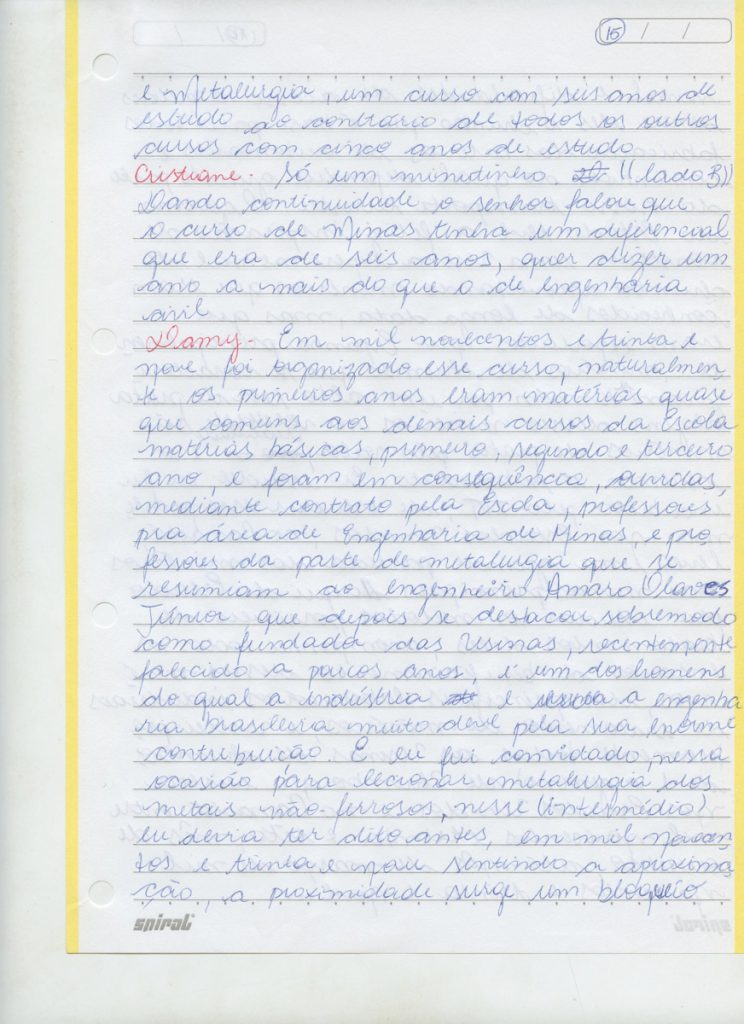 15 / /
e Metalurgia, um curso com seis anos de
estudo ao contrário de todos os outros
cursos com cinco anos de estudo
Cristiane - Só um minutinho. ((lado B))
Dando continuidade o senhor falou que
o curso de Minas tinha um diferencial
que era de seis anos, quer dizer um
ano a mais do que o de engenharia
civil
Damy - Em mil novecentos e trinta e
nove foi organizado esse curso, naturalmen-
te os primeiros anos eram matérias quase
que comuns aos demais cursos da Escola
matérias básicas, primeiro, segundo e terceiro
ano, e foram em consequência, ouvidas,
mediante contrato pela Escola, professores
pra área de Engenharia de Minas, e pro
fessores da parte de metalurgia que se
resumiam ao engenheiro Amaro Olaves
Júnior que depois se destacou sobremodo
como fundada das Usinas, recentemente
falecido a poucos anos, é um dos homens
do qual a indústria e a engenha
ria brasileira muito deve pela sua enorme
contribuição. E eu fui convidado, nessa
ocasião para lecionar metalurgia dos
metais não-ferrosos, nesse (intermédio)
eu devia ter dito antes, em mil novecen
tos e trinta e nove sentindo a aproxima
ção, a proximidade surge um bloqueio
spiral